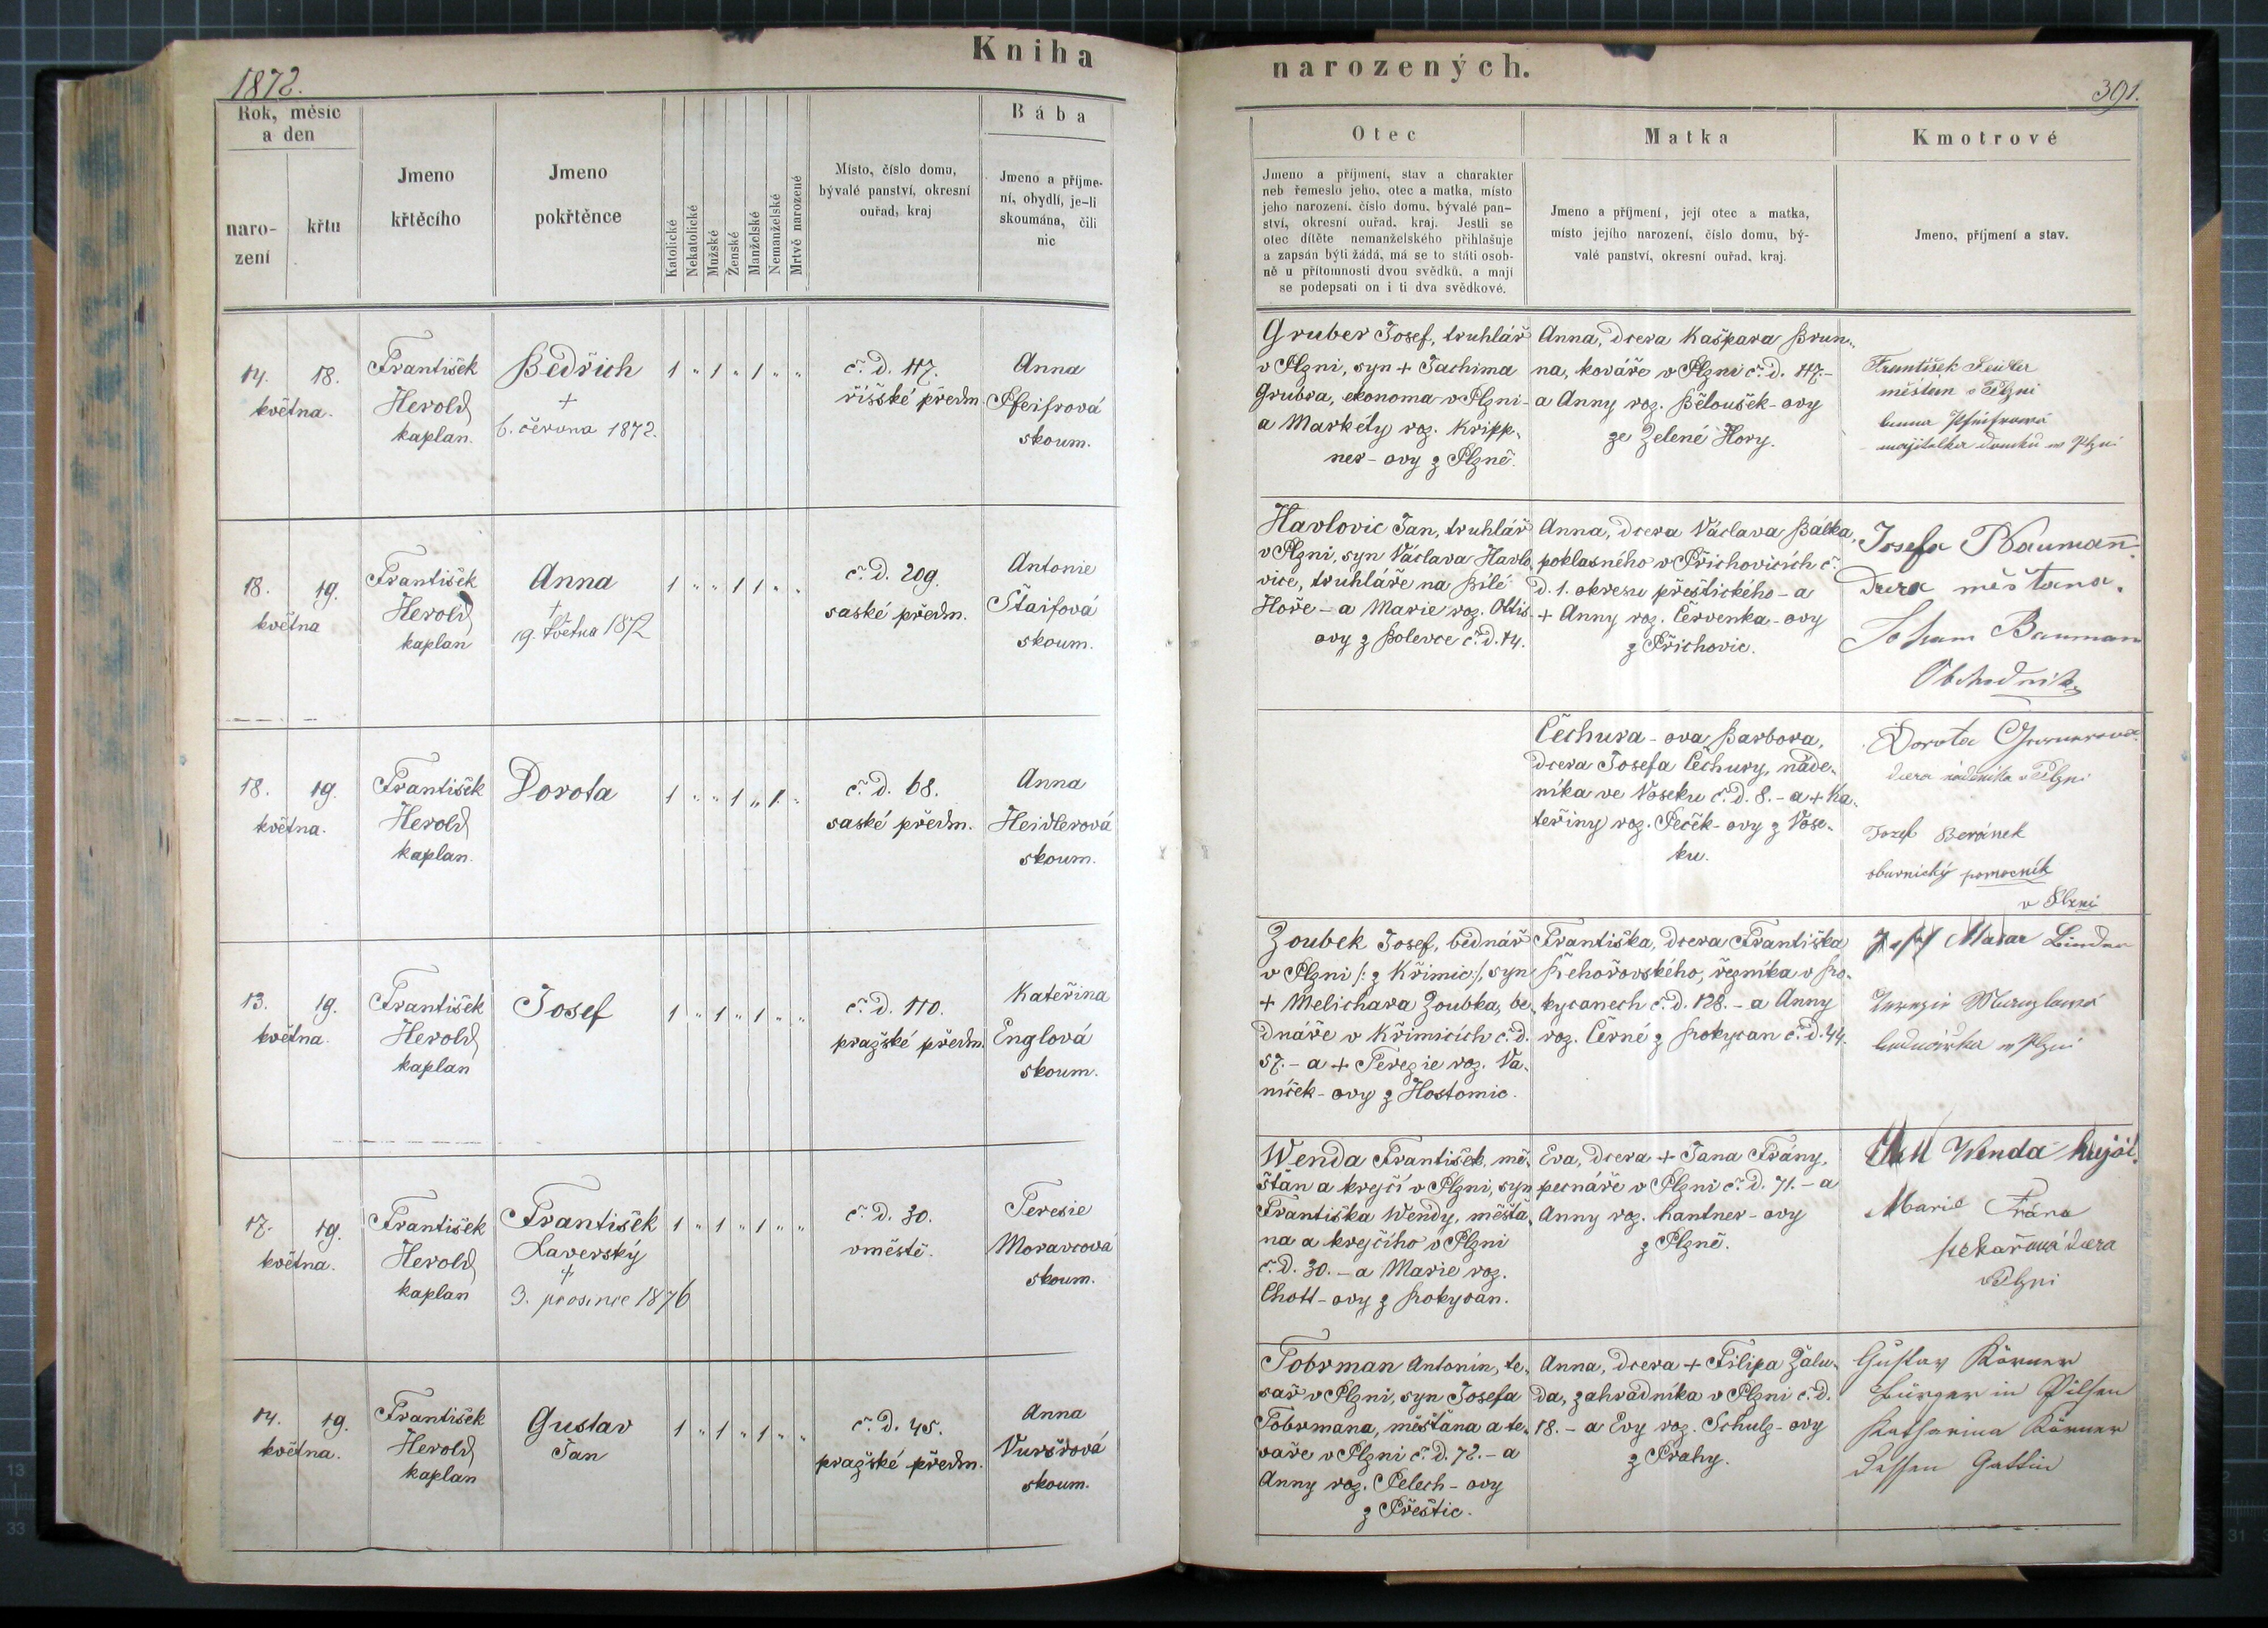 Kniha
1872.
Rok, měsíc
a den
naro-
zení
křtu
Jmeno
křtěcího
Jmeno
pokřtěnce
Katolické
Nekatolické
Mužské
Ženské
Manželské
Nemanželské
Mrtvě narozené
Místo, číslo domu,
bývalé panství, okresní
ouřad, kraj
Bába
Jmeno a příjme-
ní, obydlí, je-li
skoumána, čili
nic
14. 18.
května.
František
Herold
kaplan.
Bedřich
+
6. června 1872.
1 " 1 " 1 " "
č. d. 117.
říšské předm.
Anna
Pfeifrová
skoum.
18. 19.
května
František
Herold
kaplan
Anna
+
19. května 1872
1 " " 1 1 " "
č. d. 209.
saské předm.
Antonie
Štaifová
skoum.
18. 19.
května.
František
Herold
kaplan.
Dorota
1 " " 1 " 1 "
č. d. 68.
saské předm.
Anna
Heidlerová
skoum.
13. 19.
května.
František
Herold
kaplan
Josef
1 " 1 " 1 " "
č. d. 110.
pražské předm.
Kateřina
Englová
skoum.
17. 19.
května.
František
Herold
kaplan
František
Laverský
+
3. prosince 1876
1 " 1 " 1 " "
č. d. 30.
v městě.
Teresie
Moravcová
skoum.
14. 19.
května.
František
Herold
kaplan
Gustav
Jan
1 " 1 " 1 " "
č. d. 45.
pražské předm.
Anna
Vuršrová
skoum.
narozených.
391.
Otec
Jmeno a příjmení, stav a charakter
neb řemeslo jeho, otec a matka, místo
jeho narození, číslo domu, bývalé pan-
ství, okresní ouřad, kraj. Jestli se
otec dítěte nemanželského přihlašuje
a zapsán býti žádá, má se to státi osob-
ně u přítomnosti dvou svědků, a mají
se podepsati on i ti dva svědkové.
Matka
Jmeno a příjmení, její otec a matka,
místo jejího narození, číslo domu, bý-
valé panství, okresní ouřad, kraj.
Kmotrové
Jmeno, příjmení a stav.
Gruber Josef, truhlář
v Plzni, syn + Jachima
Grubra, ekonoma v Plzni -
a Markéty roz. Kripp-
ner-ovy z Plzně.
Anna, dcera Kašpara Brun-
na, kováře v Plzni č. d. 117. -
a Anny roz. Běloušek-ovy
ze Zelené Hory.
František
měštan v Plzni
Anna Pfeifrová
majitelka domku v Plzni
Havlovic Jan, truhlář
v Plzni, syn Václava Havlo-
vice, truhláře na Bílé
Hoře - a Marie roz. Ottis-
ovy z Bolevce č. d. 14.
Anna, dcera Václava Bálka,
poklasného v Příchovicích č.
d. 1. okresu přeštického - a
+ Anny roz. Červenka-ovy
z Příchovic.
Josefa Bauman̄
dcera měštana.
Johann Bauman
Obchodník
Čechura-ova Barbora,
dcera Josefa Čechury, náde-
níka ve Voseku č. d. 8. - a + Ka-
teřiny roz. Peček-ovy z Vose-
ku.
Dorota
dcera nádeníka v Plzni
Jozef Beránek
obuvnický pomocník
v Plzni
Zoubek Josef, bednář
v Plzni /: z Křimic :/, syn
+ Melichara Zoubka, be-
dnáře v Křimicích č. d.
57. - a + Terezie roz. Va-
níček-ovy z Hostomic.
Františka, dcera Františka
Řehořovského, řezníka v Ro-
kycanech č. d. 128. - a Anny
roz. Černé z Rokycan č. d. 44.
Josef
bednářka v Plzni
Wenda František, mě-
šťan a krejčí v Plzni, syn
Františka Wendy, měšťa-
na a krejčího v Plzni
č. d. 30. - a Marie roz.
Chott-ovy z Rokycan.
Eva, dcera + Jana Frány,
pecnáře v Plzni č. d. 71. - a
Anny roz. Hantner-ovy
z Plzně.
Wenda
Marie Frána
pekařová dcera
v Plzni
Tobrman Antonín, te-
sař v Plzni, syn Josefa
Tobrmana, měšťana a te-
saře v Plzni č. d. 72. - a
Anny roz. Pelech-ovy
z Přeštic.
Anna, dcera + Filipa Žalu-
da, zahradníka v Plzni č. d.
18. - a Evy roz. Schulz-ovy
z Prahy.
Gustav Körner
Bürger in Pilsen
Katharina Körner
dessen Gattin